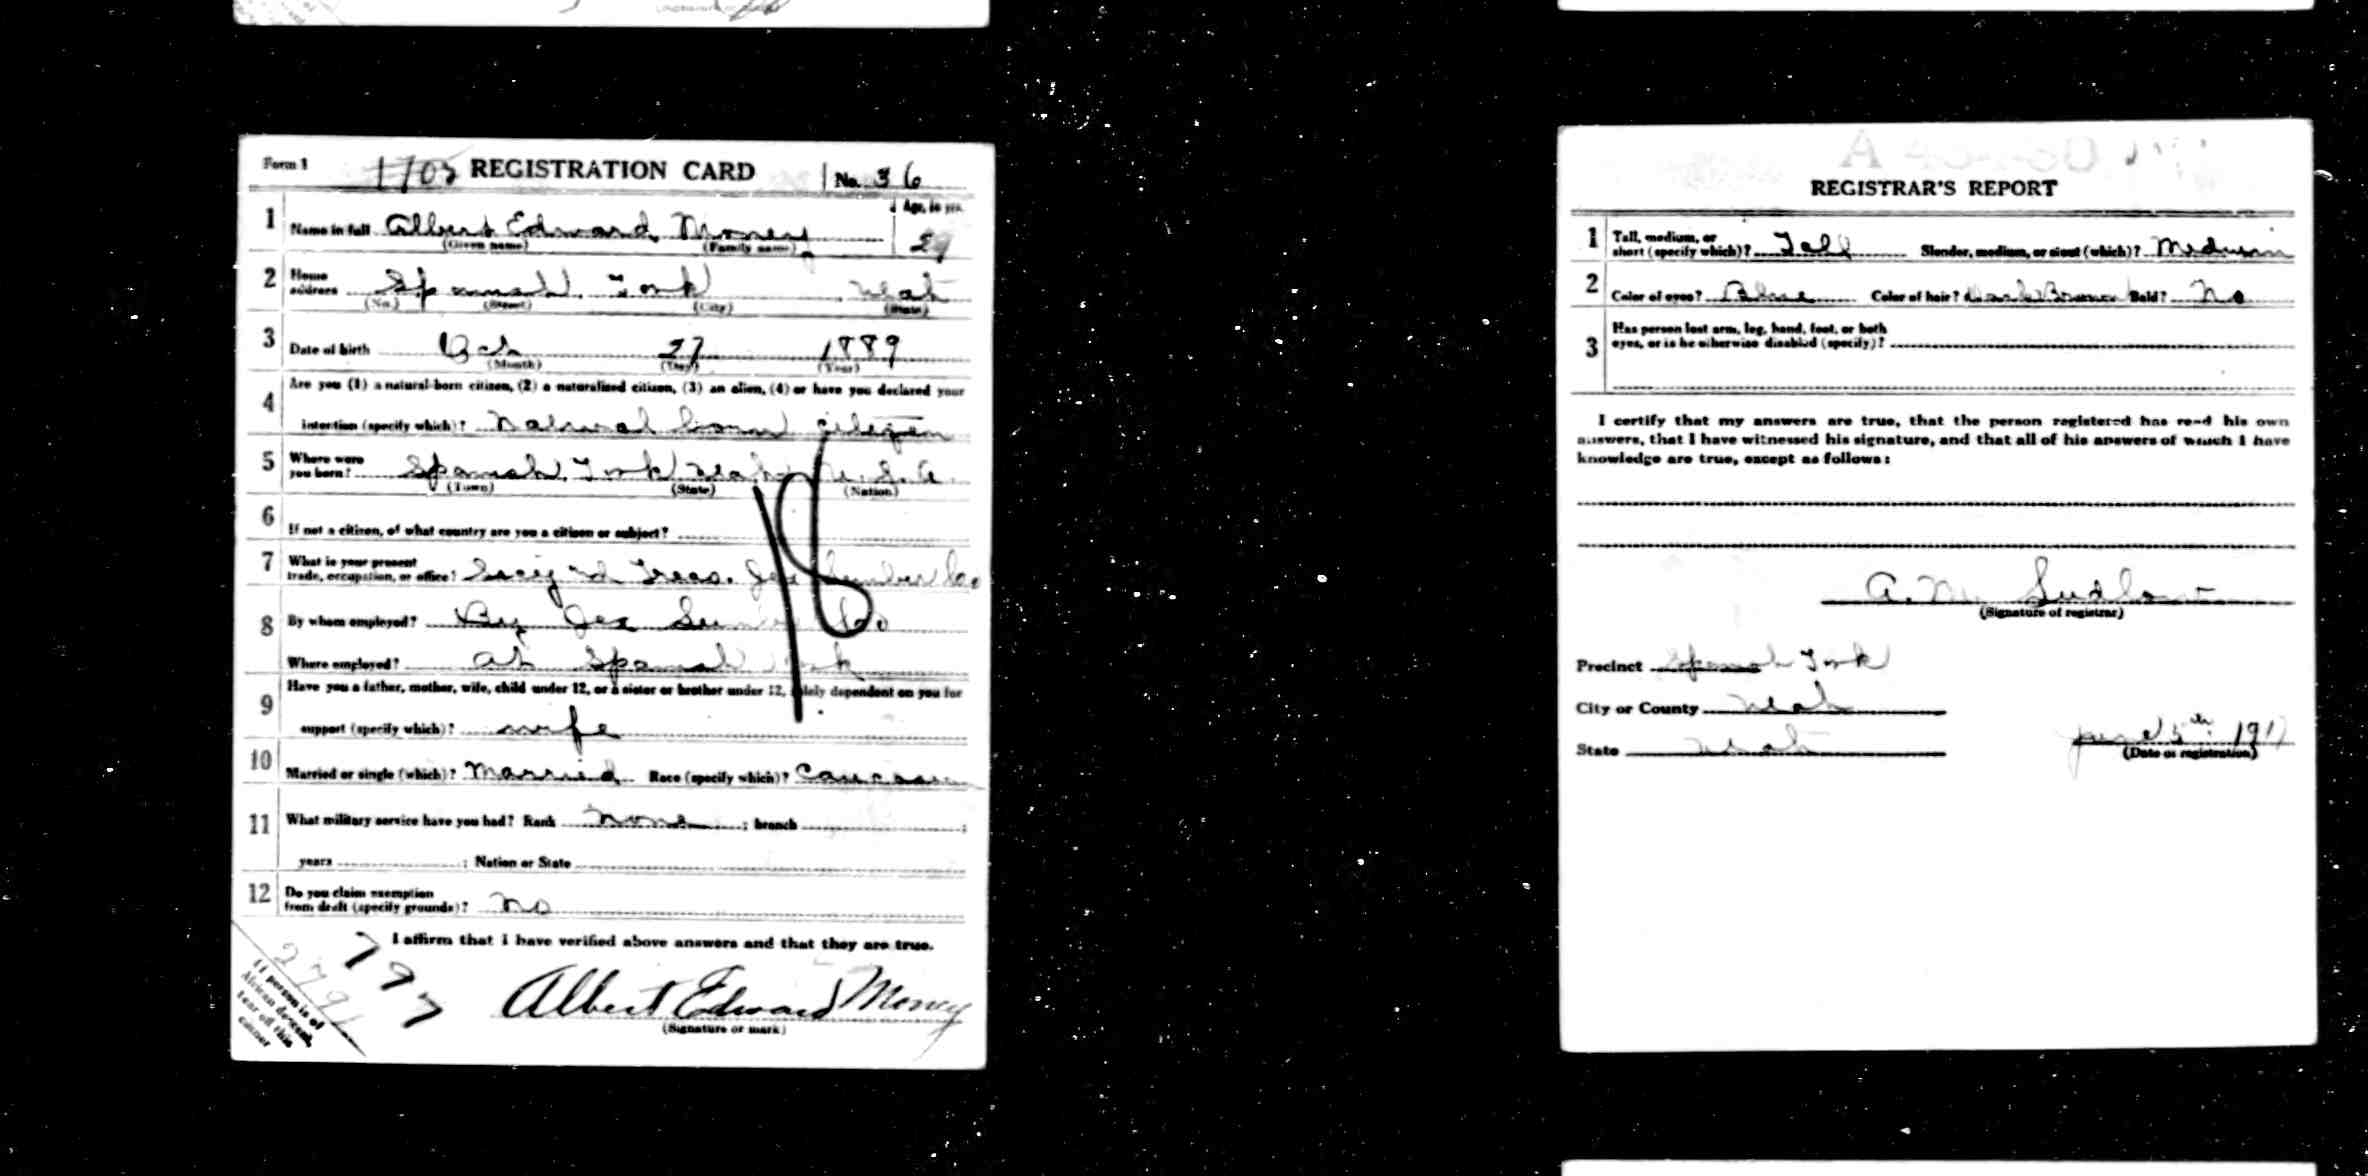 Form 1 1702 REGISTRATION CARD No. 36
1 Name in full Albert Edward Money Age, in yrs. 27
(Given name) (Family name)
2 Home address Spanish Fork Utah
(No.) (Street) (City) (State)
3 Date of birth Oct 27 1889
(Month) (Day) (Year)
4 Are you (1) a natural-born citizen, (2) a naturalized citizen, (3) an alien, (4) or have you declared your
intention (specify which)? Natural born citizen
5 Where were you born? Spanish Fork Utah U.S.A.
(Town) (State) (Nation)
6 If not a citizen, of what country are you a citizen or subject?
7 What is your present trade, occupation, or office? Secy and Treas. Jex Lumber Co
8 By whom employed? By Jex Lumber Co
Where employed? at Spanish Fork
9 Have you a father, mother, wife, child under 12, or a sister or brother under 12, solely dependent on you for
support (specify which)? wife
10 Married or single (which)? Married Race (specify which)? Caucasian
11 What military service have you had? Rank None ; branch ;
years ; Nation or State
12 Do you claim exemption from draft (specify grounds)? No
I affirm that I have verified above answers and that they are true.
797
Albert Edward Money
(Signature or mark)
If person is of
African descent,
tear off this
corner
REGISTRAR'S REPORT
1 Tall, medium, or short (specify which)? Tall Slender, medium, or stout (which)? Medium
2 Color of eyes? Blue Color of hair? Dark Brown Bald? No
3 Has person lost arm, leg, hand, foot, or both
eyes, or is he otherwise disabled (specify)?
I certify that my answers are true, that the person registered has read his own
answers, that I have witnessed his signature, and that all of his answers of which I have
knowledge are true, except as follows:
A. M. Ludlow
(Signature of registrar)
Precinct Spanish Fork
City or County Utah
State Utah
June 5th 1917
(Date of registration)